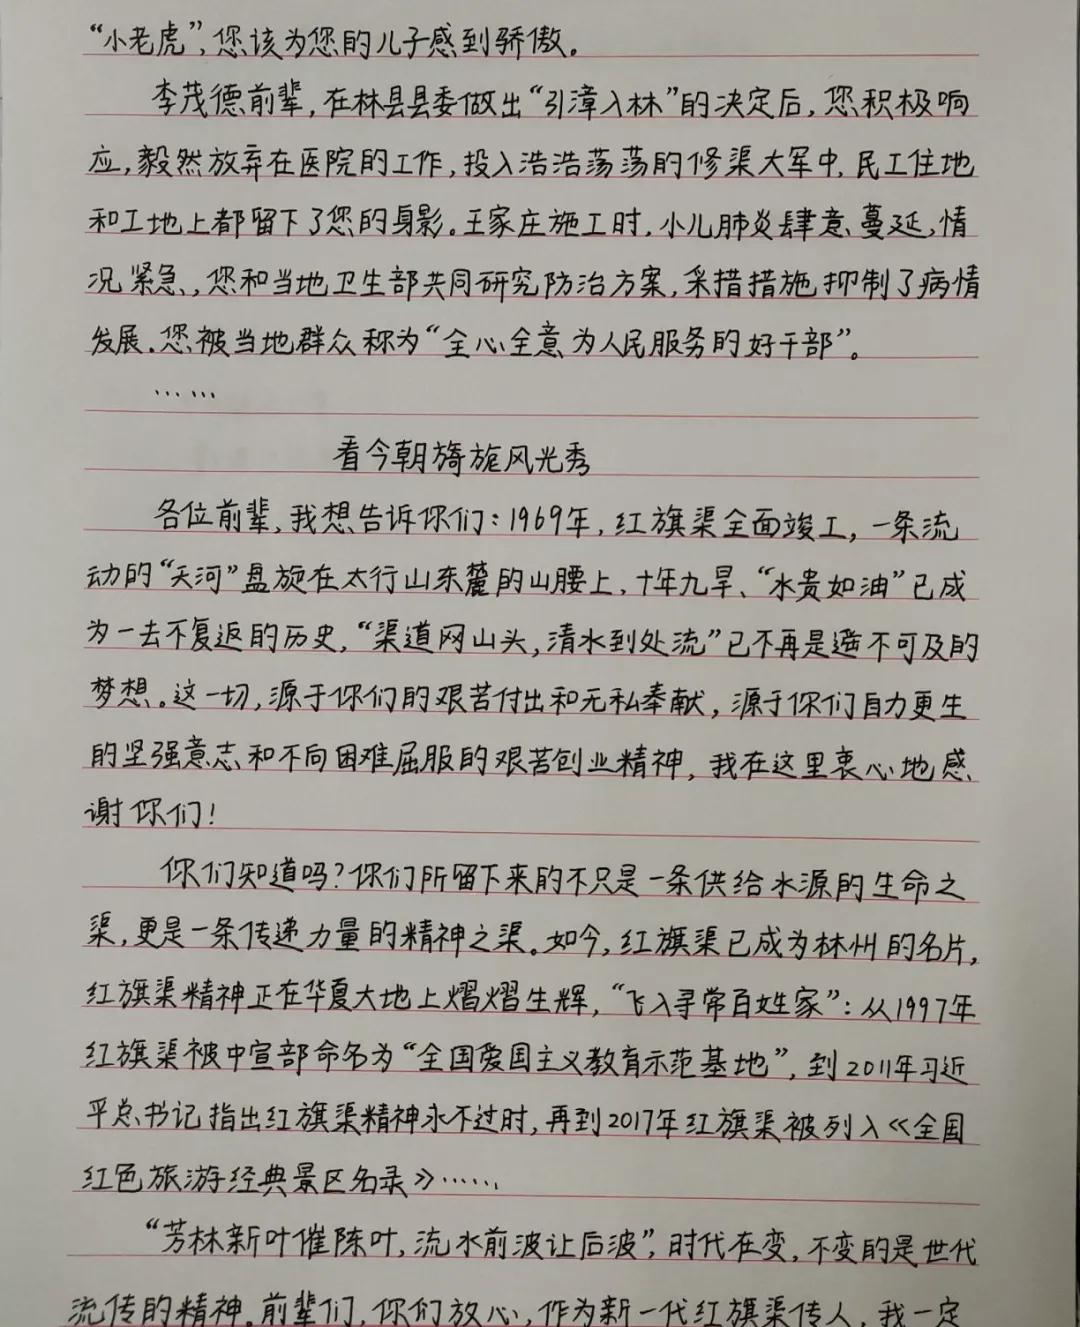 “小老虎”，您该为您的儿子感到骄傲。
李茂德前辈，在林县县委做出“引漳入林”的决定后，您积极响
应，毅然放弃在医院的工作，投入浩浩荡荡的修渠大军中，民工住地
和工地上都留下了您的身影。王家庄施工时，小儿肺炎肆意蔓延，情
况紧急，您和当地卫生部共同研究防治方案，采措措施抑制了病情
发展。您被当地群众称为“全心全意为人民服务的好干部”。
……
看今朝旖旎风光秀
各位前辈，我想告诉你们：1969年，红旗渠全面竣工，一条流
动的“天河”盘旋在太行山东麓的山腰上，十年九旱、“水贵如油”已成
为一去不复返的历史，“渠道网山头，清水到处流”已不再是遥不可及的
梦想。这一切，源于你们的艰苦付出和无私奉献，源于你们自力更生
的坚强意志和不向困难屈服的艰苦创业精神，我在这里衷心地感
谢你们！
你们知道吗？你们所留下来的不只是一条供给水源的生命之
渠，更是一条传递力量的精神之渠。如今，红旗渠已成为林州的名片，
红旗渠精神正在华夏大地上熠熠生辉，“飞入寻常百姓家”：从1997年
红旗渠被中宣部命名为“全国爱国主义教育示范基地”，到2011年习近
平总书记指出红旗渠精神永不过时，再到2017年红旗渠被列入《全国
红色旅游经典景区名录》……
“芳林新叶催陈叶，流水前波让后波”，时代在变，不变的是世代
流传的精神。前辈们，你们放心，作为新一代红旗渠传人，我一定